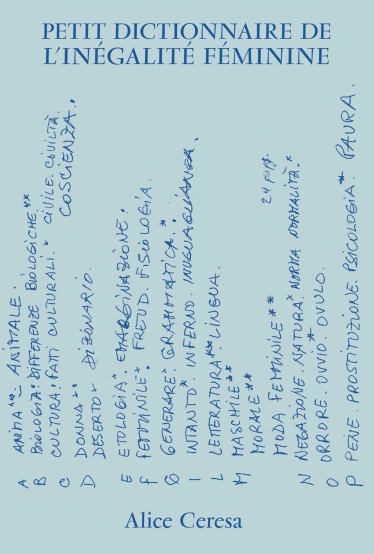 PETIT DICTIONNAIRE DE
L'INÉGALITÉ FÉMININE
A ANIMA** ANIMALE.
B BIOLOGIA. DIFFERENZE BIOLOGICHE**
C CULTURA. FATI CULTURALI.* CIVILE. CIVILTÀ. COSCIENZA.
D DONNA** DIZIONARIO.
DESERTO*
E ETOLOGIA* EMARGINAZIONE.
F FEMMINILE* FREUD. FISIOLOGIA.
G GENERARE* GRAMMATICA.*
I INTANTO* INFERNO. INUGUAGLIANZA.
L LETTERATURA** LINGUA.
M MASCHILE**
MORALE**
MODA FEMMINILE**
24 pagg.
N NEGAZIONE. NATURA* NORMA NORMALITÀ.*
O ORRORE. OVVIO.* OVULO.
P PENE. PROSTITUZIONE. PSICOLOGIA* PAURA.
Alice Ceresa